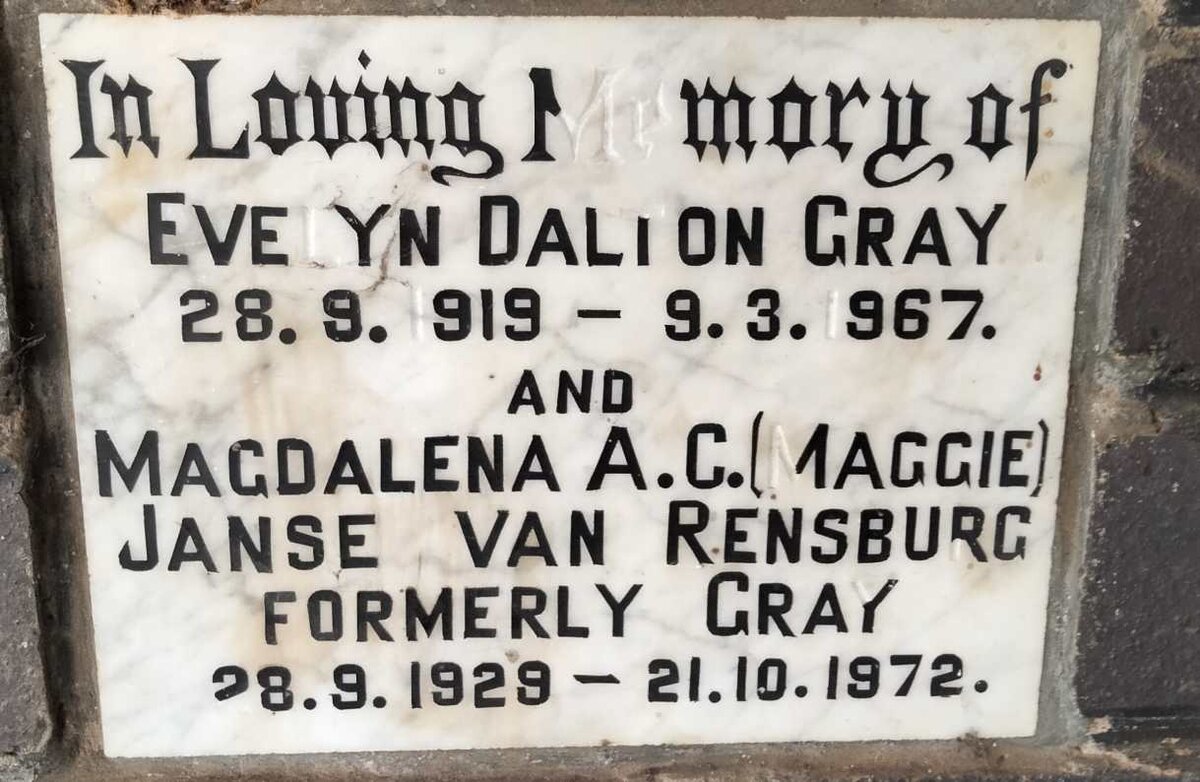 In Loving Memory of
EVELYN DALTON GRAY
28.9.1919 – 9.3.1967.
AND
MAGDALENA A.C.(MAGGIE)
JANSE VAN RENSBURG
FORMERLY GRAY
28.9.1929 – 21.10.1972.